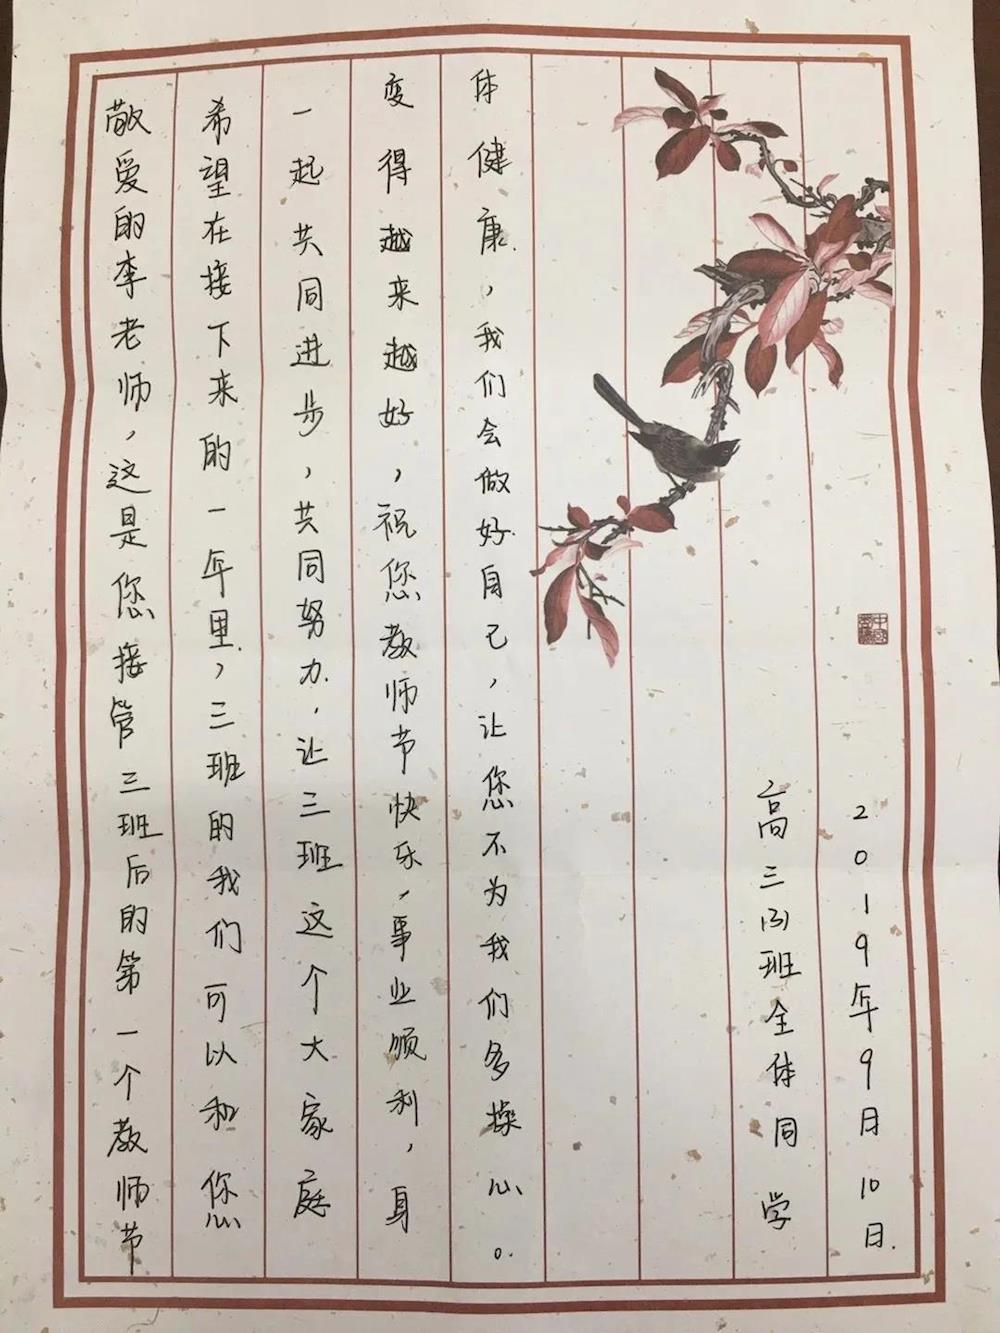 敬爱的李老师，这是您接管三班后的第一个教师节
希望在接下来的一年里，三班的我们可以和您
一起共同进步，共同努力，让三班这个大家庭
变得越来越好，祝您教师节快乐，事业顺利，身
体健康，我们会做好自己，让您不为我们多操心。
高三(3)班全体同学
2019年9月10日.